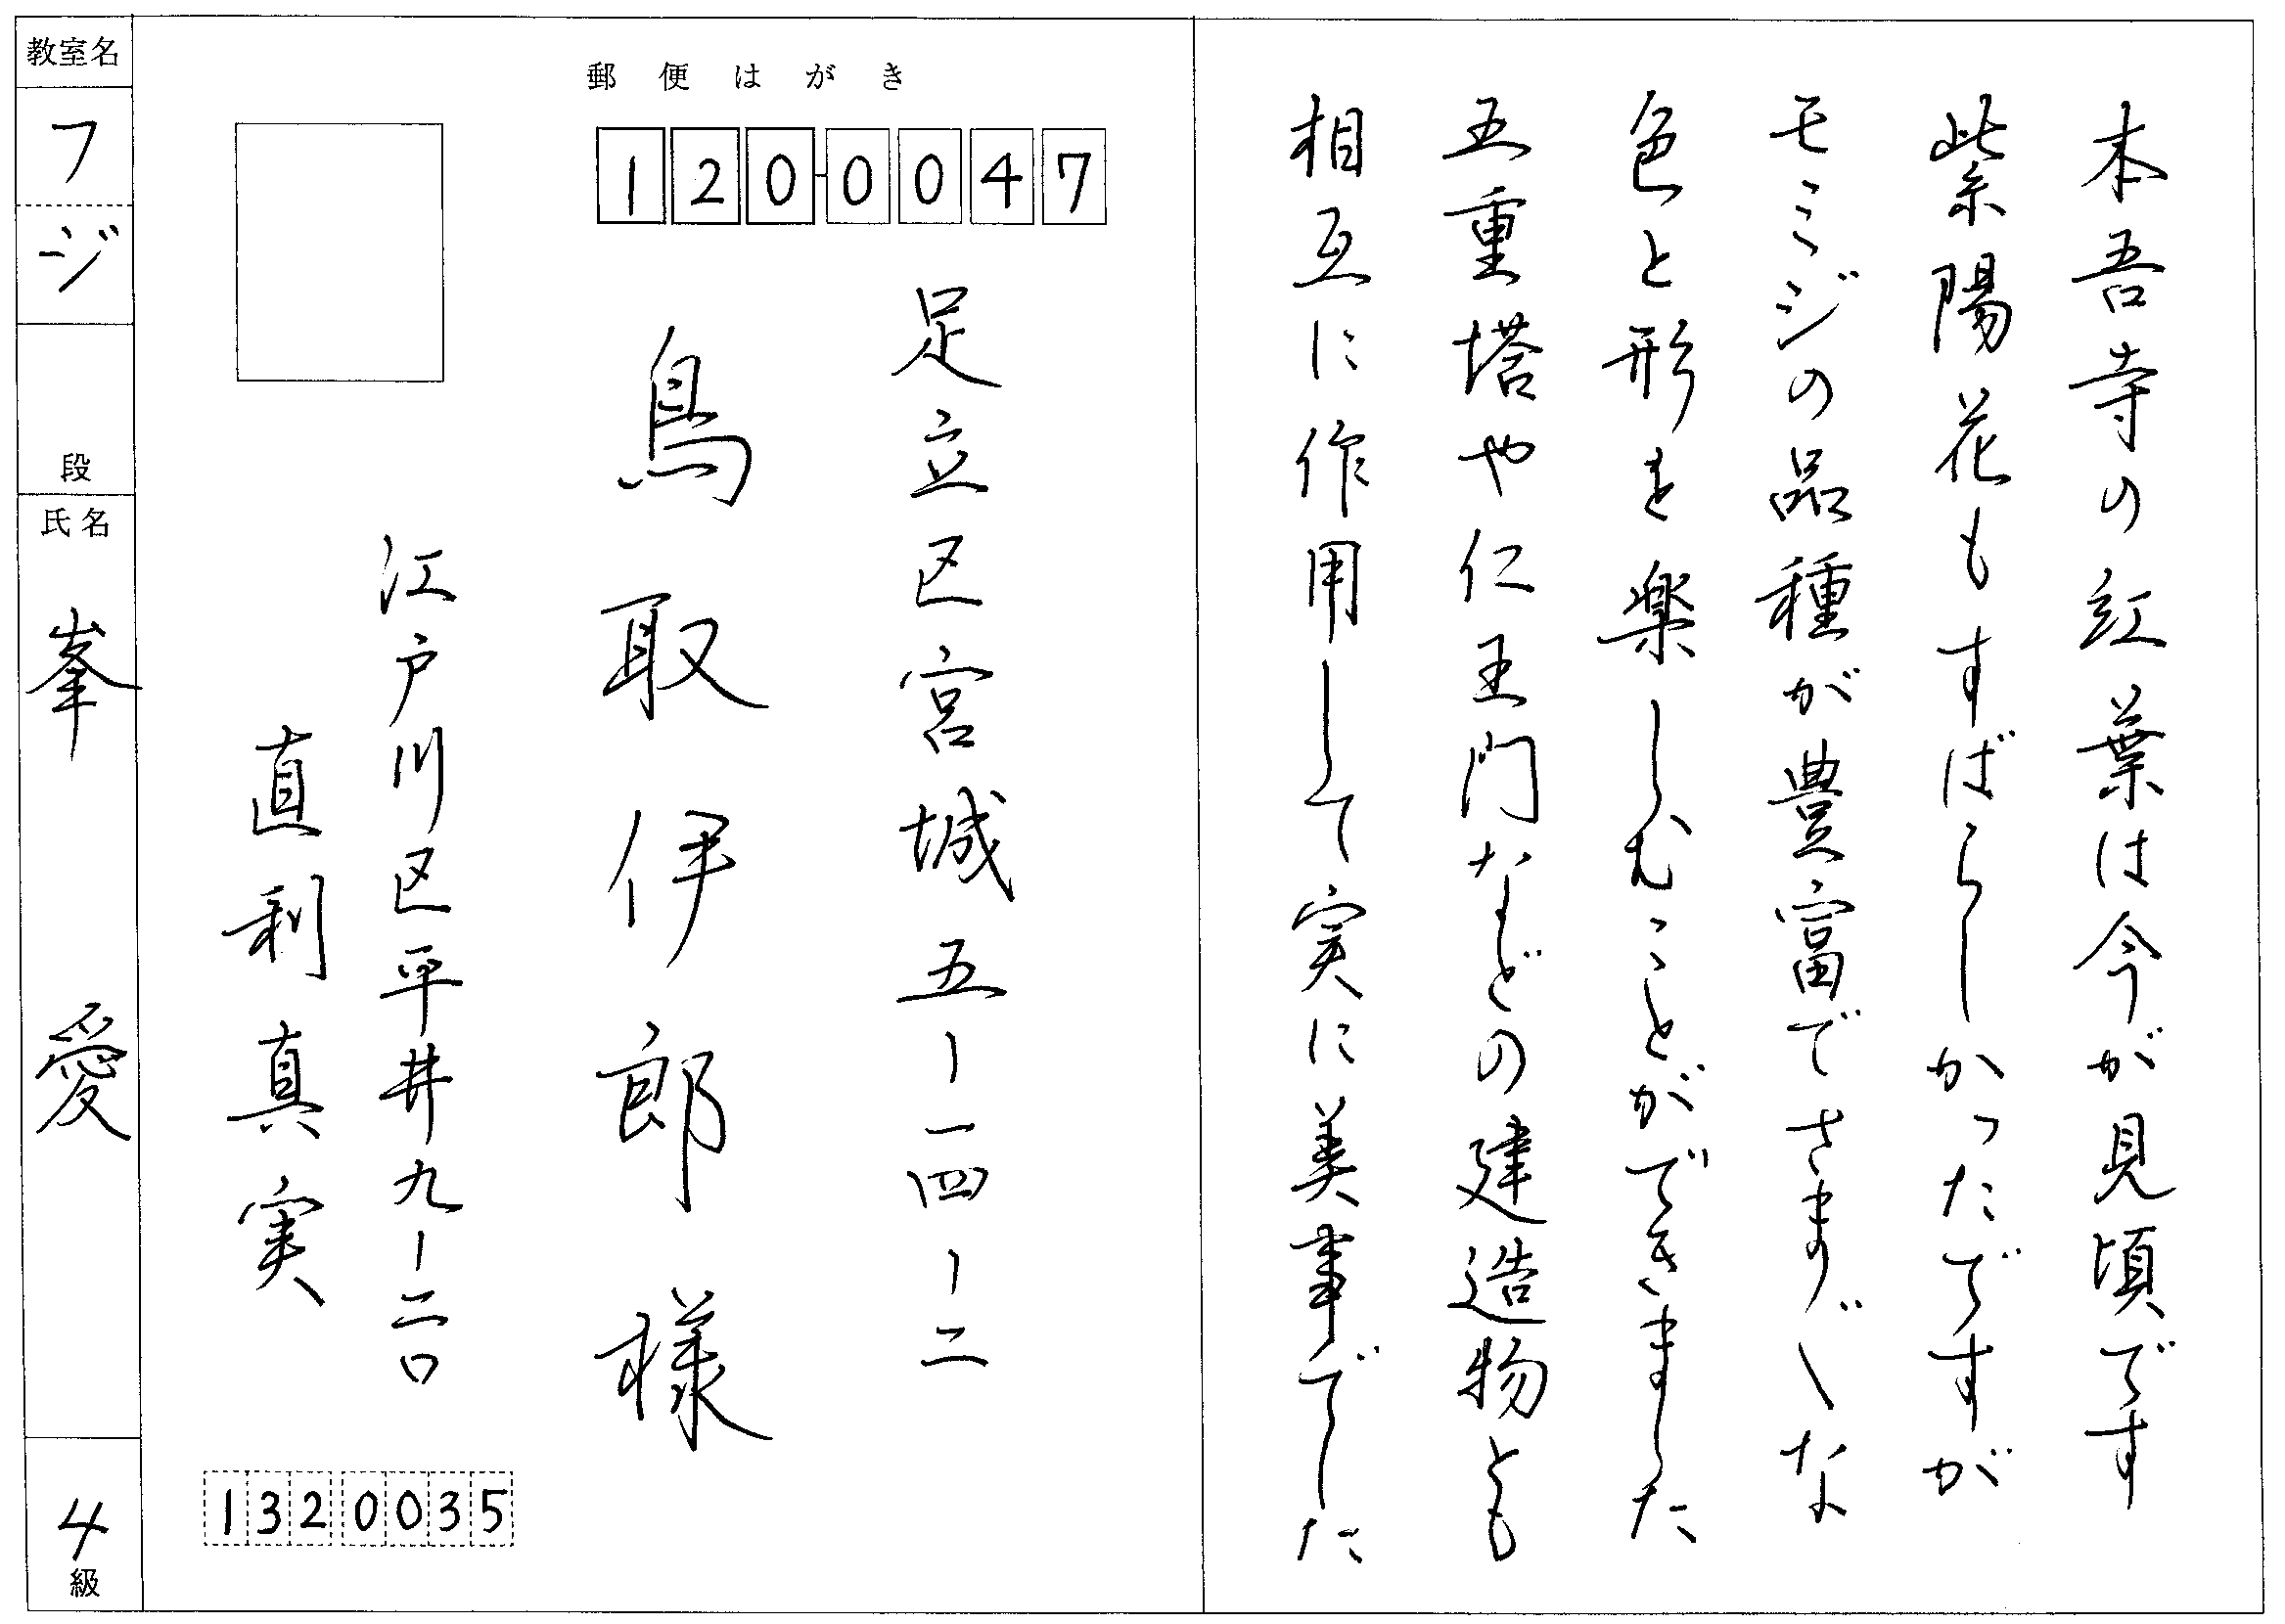 本吾寺の紅葉は今が見頃です
紫陽花もすばらしかったですが
モミジの品種が豊富でさまざ〲な
色と形を楽しむことができました
五重塔や仁王門などの建造物とも
相互に作用して実に美事でした
郵便はがき
120-0047
足立区宮城五ー一四ー二
鳥取伊郎様
江戸川区平井九ー二〇
直利真実
1320035
教室名
フジ
段
氏名
峯愛
4級